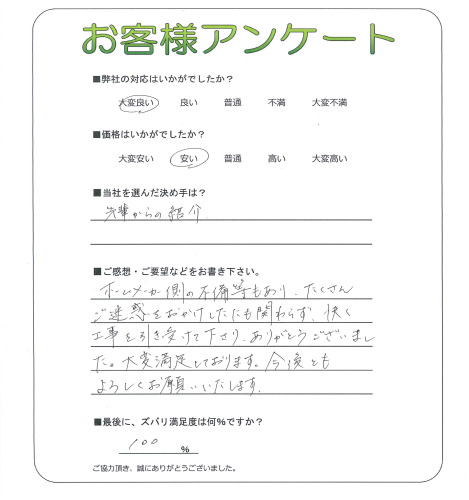 お客様アンケート
■弊社の対応はいかがでしたか？
大変良い 良い 普通 不満 大変不満
■価格はいかがでしたか？
大変安い 安い 普通 高い 大変高い
■当社を選んだ決め手は？
先輩からの紹介
■ご感想・ご要望などをお書き下さい。
ホームメーカー側の不備等もあり、たくさん
ご迷惑をおかけしたにも関わらず、快く
工事を引き受けて下さり、ありがとうございまし
た。大変満足しております。今後とも
よろしくお願いいたします。
■最後に、ズバリ満足度は何％ですか？
100 ％
ご協力頂き、誠にありがとうございました。